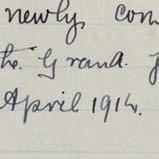 newly con
the Grand. J
April 1914.